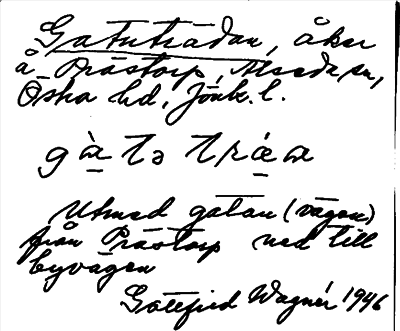 Gatuträdan, åker
å Prästorp, Alseda sn,
Östra hd, Jönk. l.
gàtə trá̱a
Utmed gatan (vägen)
från Prästorp ned till
byvägen
Gotfrid Wagnér 1946